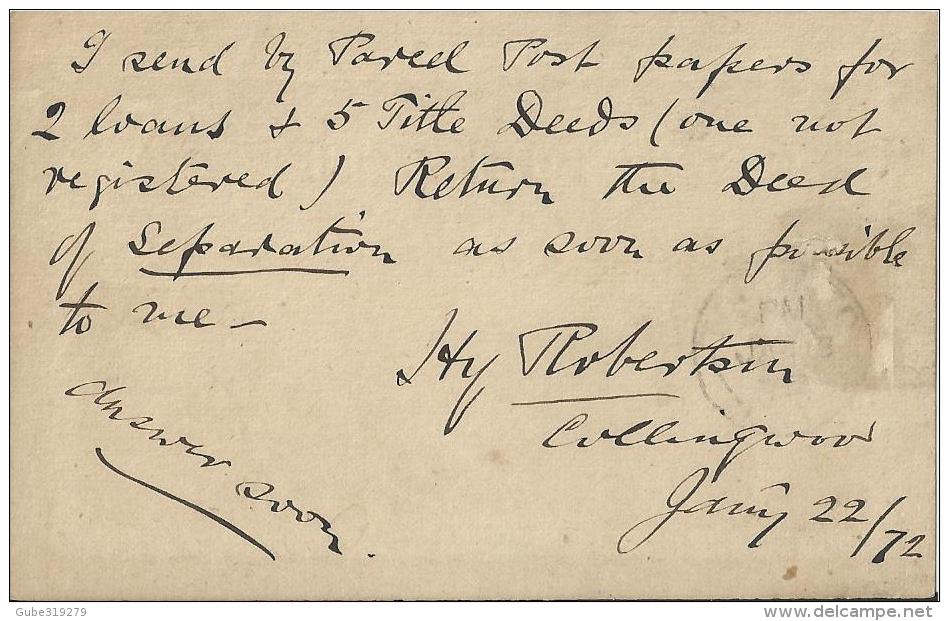 I send by Parcel Post papers for
2 loans & 5 Title Deeds (one not
registered) Return the Deed
of Separation as soon as possible
to me —
Hy Robertson
Collingwood
Jany 22/72
Answer soon.
Gube319279
www.delcampe.net